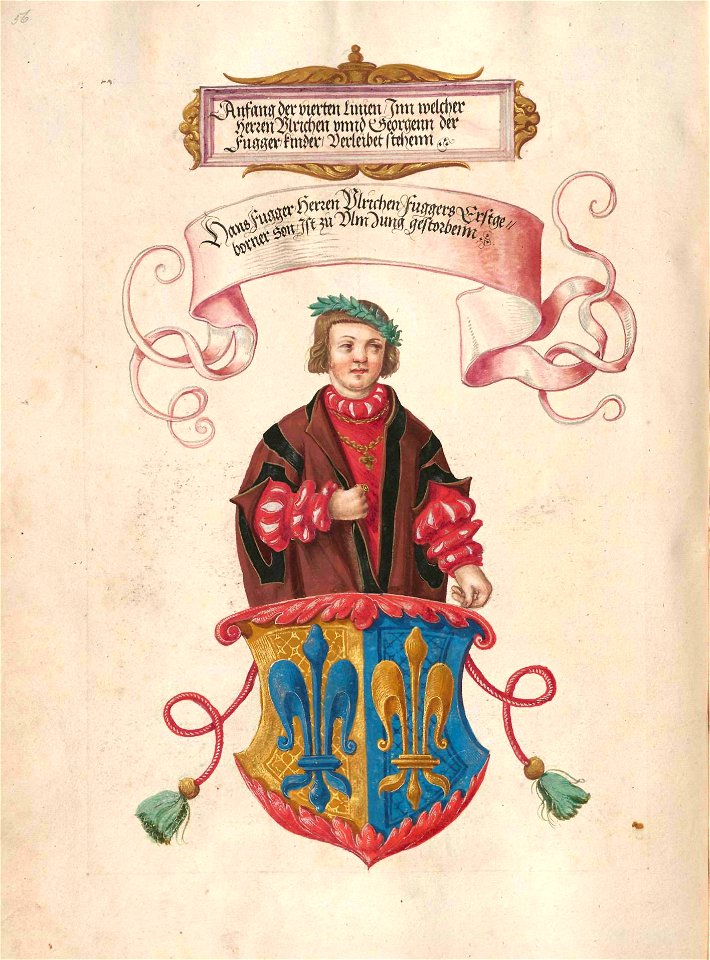 56
Anfang der vierten Linien / Inn welcher
Herren Ulrichen unnd Georgenn der
Fugger kinder / Verleibet stehenn
Hans Fugger Herren Ulrichen Fuggers Erstge〃
borner Son / Ist zu Ulm Jung gestorbenn